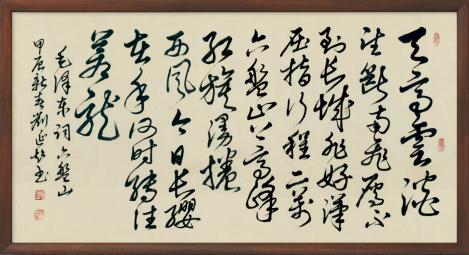 天高雲淡
望斷南飛雁不
到長城非好漢
屈指行程二萬
六盤山上高峰
紅旗漫捲
西風今日長纓
在手何時縛住
蒼龍
毛澤東詞六盤山
甲辰新春劉